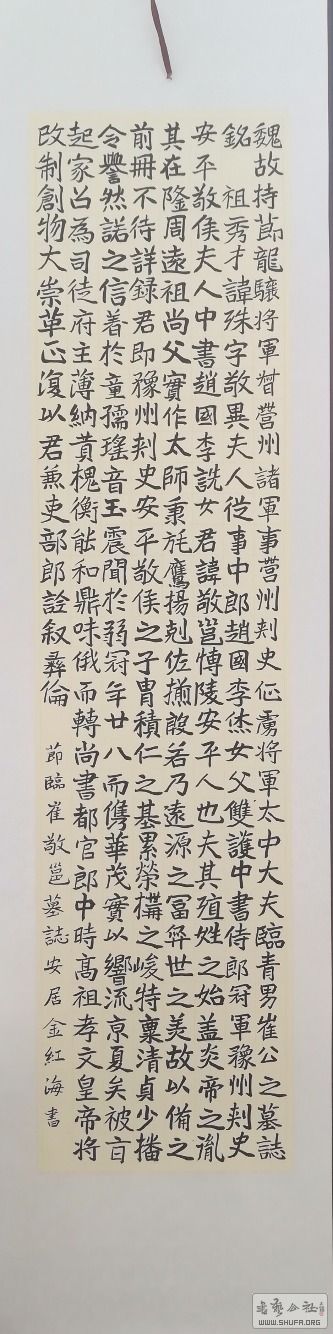 魏故持節龍驤將軍督營州諸軍事營州刺史征虜將軍太中大夫臨青男崔公之墓誌
銘 祖秀才諱殊字敬異夫人從事中郎趙國李烋女父雙護中書侍郎冠軍豫州刺史
安平敬侯夫人中書趙國李詵女君諱敬邕博陵安平人也夫其殖姓之始蓋炎帝之胤
其在隆周遠祖尚父實作太師秉旄鷹揚剋佐揃殷若乃遠源之富弈世之美故以備之
前冊不待詳録君即豫州刺史安平敬侯之子胄積仁之基累榮構之峻特稟清貞少播
令譽然諾之信著於童孺瑤音玉震聞於弱冠年廿八而儁華茂實以響流京夏矣被旨
起家召為司徒府主薄納賁槐衡能和鼎味俄而轉尚書都官郎中時高祖孝文皇帝將
改制創物大崇革正復以君兼吏部郎詮叙彝倫
節臨崔敬邕墓誌安居金紅海書
書藝公社
WWW.SHUFA.ORG